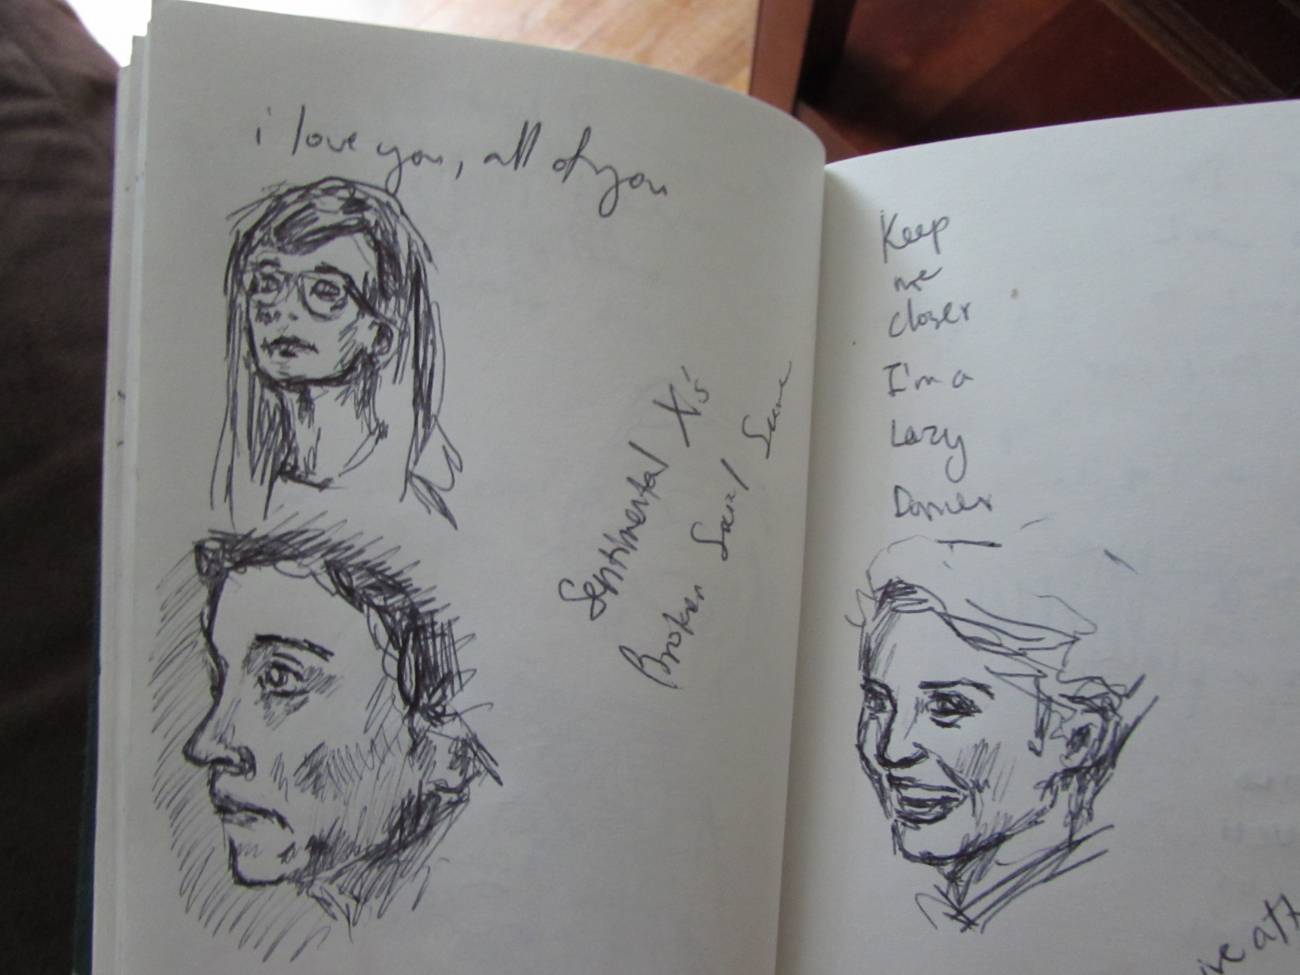 i love you, all of you
Sentimental X's
Broken Social Scene
Keep
me
closer
I'm a
Lazy
Dancer